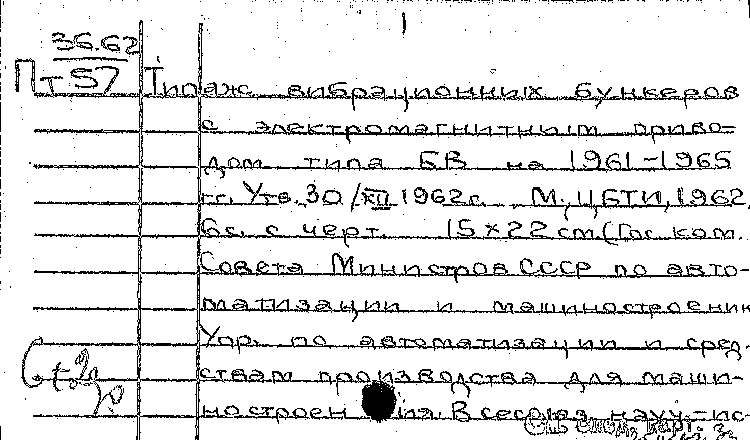 36.62
Пт 57 Типаж вибрационных бункеров
с электромагнитным приво=
дом типа БВ на 1961-1965
гг. Утв. 30/XII 1962г. М., ЦБТИ, 1962.
6с. с черт. 15×22 см. (Гос. ком.
Совета Министров СССР по авто-
матизации и машиностроению
Упр. по автоматизации и сред-
ствам производства для маши-
ностроения. Всесоюз. науч.-ис-